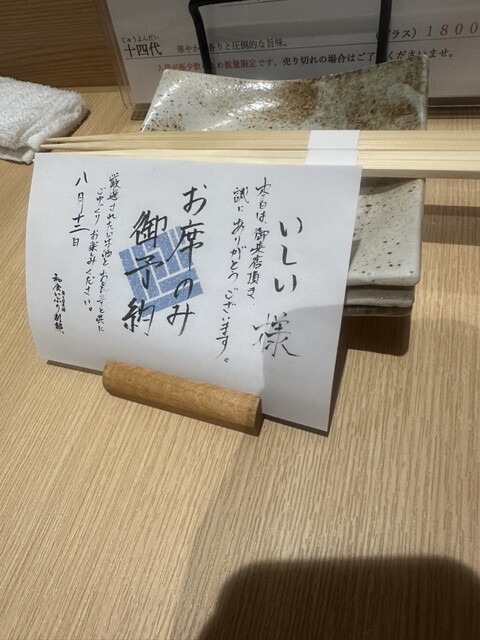 じゅうよんだい
十四代
華やか
香りと圧倒的な旨味。
グラス) 1800
入荷が極少数
め数量限定です。売り切れの場合はご了
くださいませ。
いしい 様
本日は御来店頂き
誠にありがとうございます。
お席のみ
御予約
厳選されたお酒と
共に
ごゆっくりお楽しみください。
八月十二日